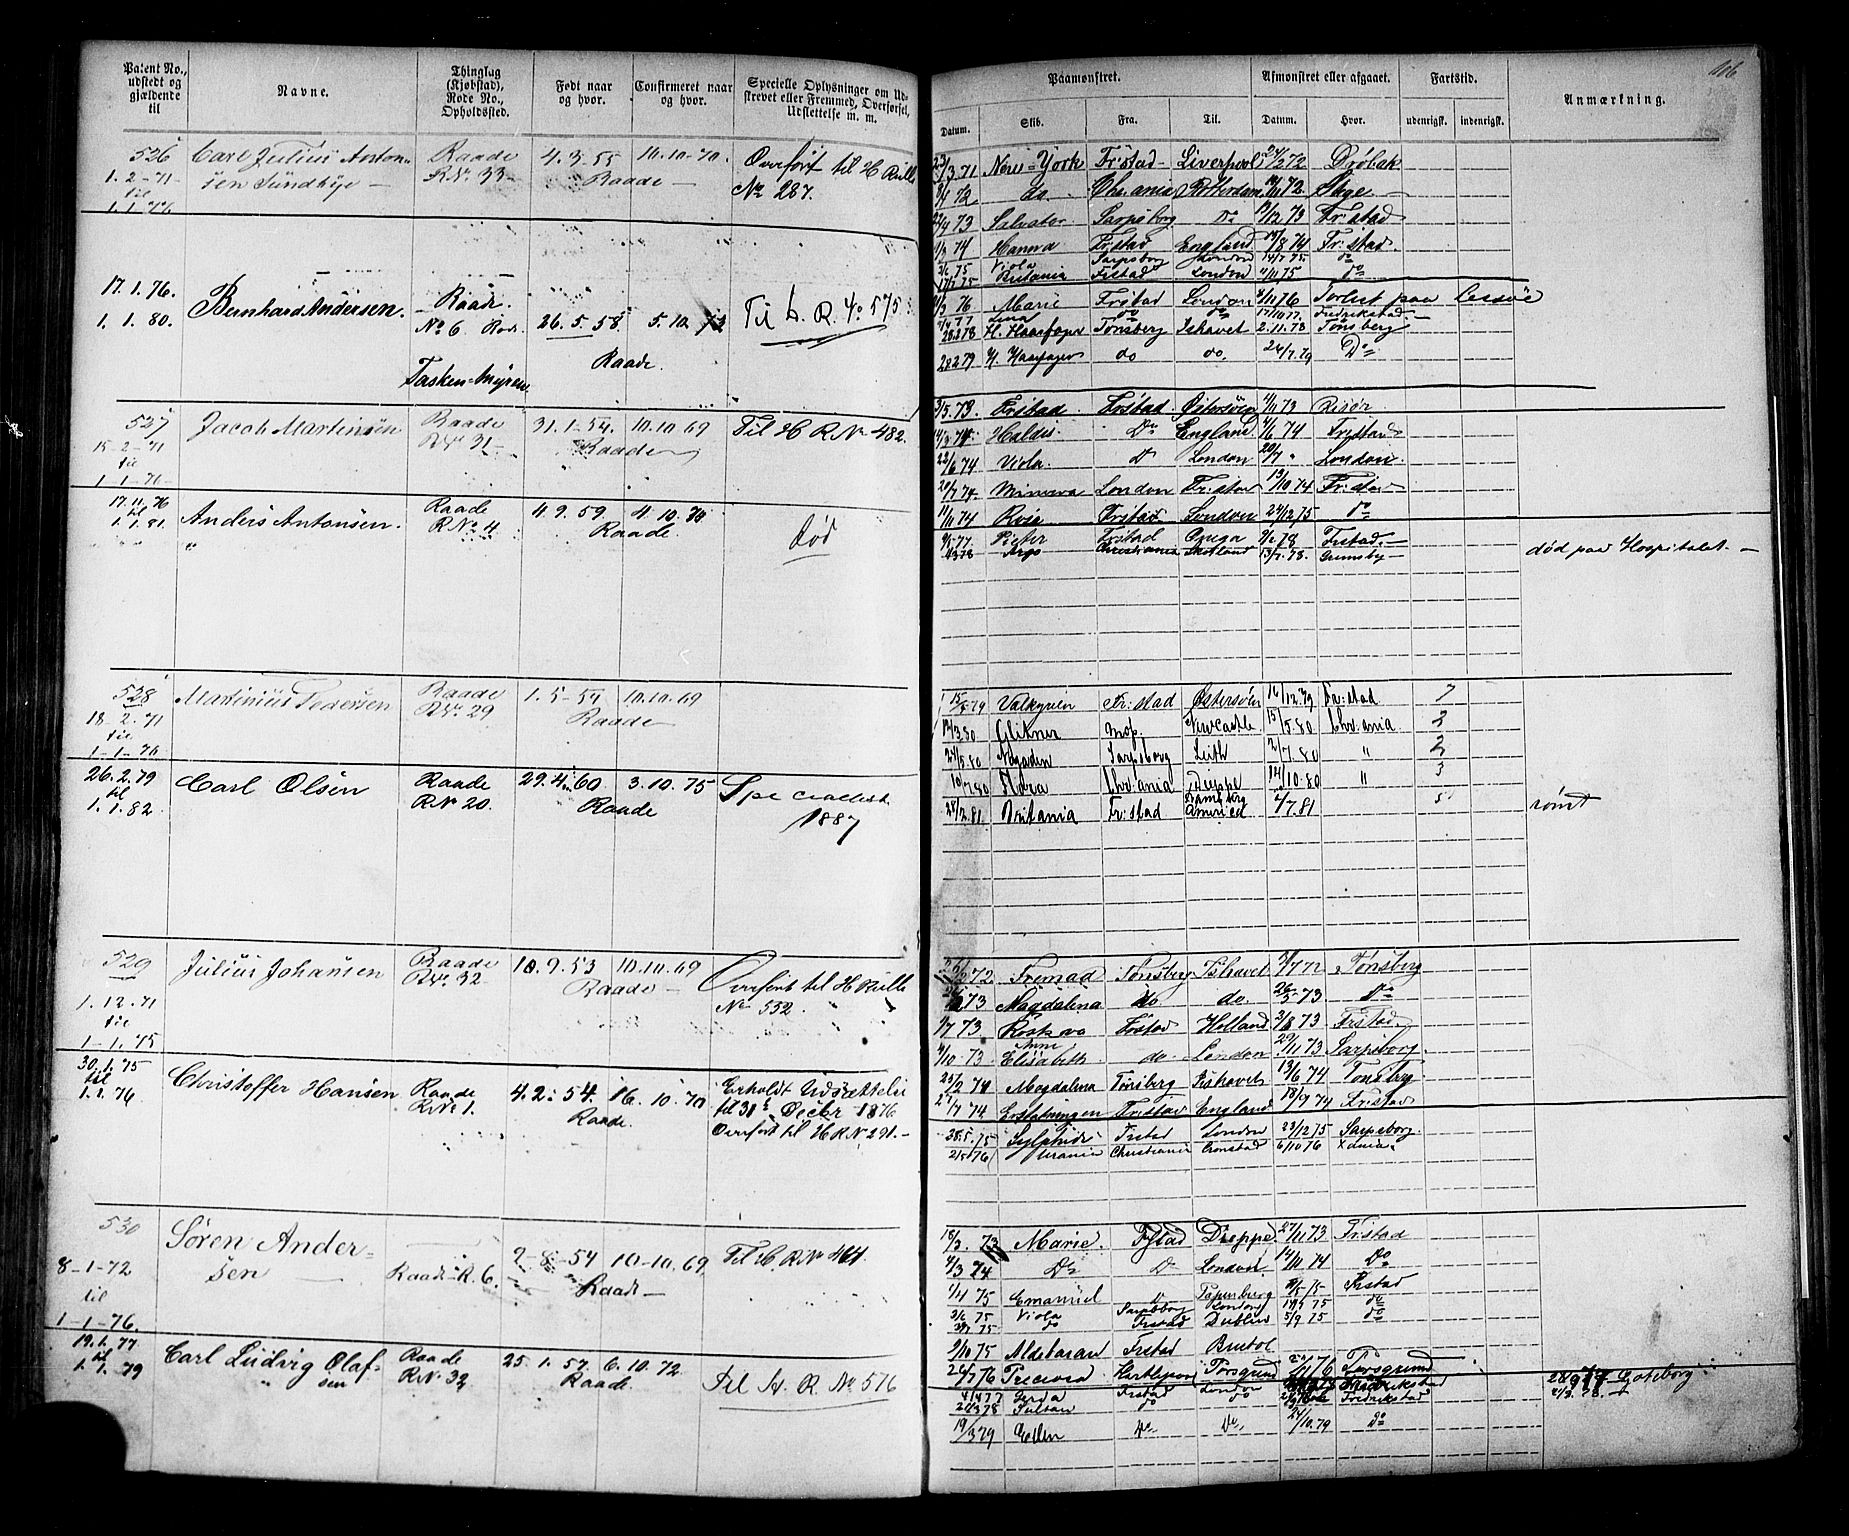 Patent No., udstedt og gjældende til
Navne.
Thinglag (Kjøbstad), Rode No., Opholdssted.
Født naar og hvor.
Confirmeret naar og hvor.
Specielle Oplysninger om Udskrevet eller Fremmed, Overførsel, Udslettelse m. m.
526
1.2-71
til
1.1.76
Carl Julius Anton-
sen Sundbye —
Raade
R.No 33-
4.3-55 10.10-70
Raade
Overført til H Rulle
No 287.
17.1.76.
1.1.80.
Bernhard Andersen.
Raade.
No 6
Tasken-Myren
26.5.58. 5.10.
Raade.
Til h. R. No 575
527
15-2-71
til
1-1-76
Jacob Martinsen
Raade
R.No 31-
31.1-54. 10.10.69
Raade
Til H R No 482.
17.11.76
til
1.1.81.
Anders Antonsen.
Raade
R No 4
4.9.59. 4.10.
Raade.
død
528
18-2.71
til
1-1-76
Martinius Pedersen
Raade
R.No 29
1.5-54 10.10.69
Raade
26.2.79
til
1.1.82
Carl Olsen
Raade
R No 20.
29.4.60 3.10.75
Raade
1887
529
1.12.71
til
1-1.75
Julius Johansen
Raade
R.No 32
10.9.53 10.10.69
Raade
Overført til H Rulle
No 532.
30.1.75
til
1.1.76
Christoffer Hansen
Raade
R No 1.
4.2.54. 16.10.70
Raade.
Erholdt Udsættelse
til 31 Decbr 1876
Overført til H R No 291.-
530
8-1-72
til
1-1-76.
Søren Ander-
sen —
Raade R.6.
2-8-54 10-10.69
Raade
Til H. R No 464.
19.1.77
til
1.1.79
Carl Ludvig Olaf-
sen
Raade
R.No 32
25.1.57. 6.10.72
Raade.
Til H. R. No 516
106
Paamønstret.
Afmønstret eller afgaaet.
Fartstid.
Anmærkning.
Datum. Skib. Fra. Til. Datum. Hvor. udenrigsk. indenrigsk.
23/3.71 New-York Fr:stad- Liverpool 24/2 72 Drøbak
4 72 do. Chr.ania Rotterdam 11 72
4 73 Salvator Sarpsborg Do 12 73 Fr:stad
3 74 Hanna Fr.stad England 8 74 Fr:stad.
2/6 75 Viola Sarpsborg London 14/7 75 do
17/7 75 Britania Frstad London 4/11 75 do
3 76 Marie Frstad London 11 76 Forlist paa Lessøe
4 77 Lina do do 17/10 77. Fredrikstad-
28 2 78 H. Haarfager Tønsberg Ishavet 2.11.78 Tønsberg
28 2 79 H. Haarfager do do. 24/7.79 Do
3/5.73. Frstad. Frstad. Østersøen 11 73 Risør
14/3.74 Haldis Do England 6 74 Frstad
22/6 74 Viola. Do London 20/7 " London.
20/7 74 Minerva London Fr:stad 19/10 74 Fr:stad
11/11 74 Rosa Frstad London 24/12 75 do
5 77 Peder Frstad Onega 78 Frstad.-
4 3 78 Argo Christiania Skotland 13/7.78. Grimsby-
død paa Hospitalet. —
15/8 79 Valkyrien Fr:stad Østersøen 16/12.79 Fr:stad 7
17/3 80 Glitner Mos. Newcastle 15/5.80 Chr:ania 2
24/5.80 Sarpsborg Leith 2/7.80 " 2
10/7 80 Flora Chr:ania Dieppe 14/10.80 " 3
28/2.81. Britania Fr:stad Amerika 2/7.81 5 rømt
72 Fremad Tønsberg Ishavet 7 72 Tønsberg
73 Magdalena do do. 26/5 73 Do
7 73 Roskva Frstad Holland 2/8 73 Frstad.
10 73 Anne Elisabeth do London 29/11 73 Sarpsborg.
25/2 74 Magdalena Tønsberg Ishavet 13/6 74 Tønsberg
27/7 74 Erstatningen Fristad England 18/9 74 Fristad
28.5.75 Sylphide Frstad London 23/12 75 Sarpsborg.
2/5 76 Urania Christiania Cronstad 6/10 76 Xania.
18/3. 73 Marie. Frstad Dieppe 27/11 73 Fr:stad
4/3 74 Do Do London 14/11 74 Do
1/4 75 Emanuel Do Papenberg 5 75 Frstad
3/6 75 Viola Sarpsborg London 19/7 75 do
75 do Frstad Dublin 5/9 75 do
9/10 75 Aldebaran Frstad Bristol
24/7 76 Preciosa Hartlepool Porsgrund 11 76 Porsgrund
4 77 Gerda Frstad London Fredrikstad
78 Sultan do do Fredrikstad
Goteborg.
19/3 79 Ellen Do Do 24/10.79 Do